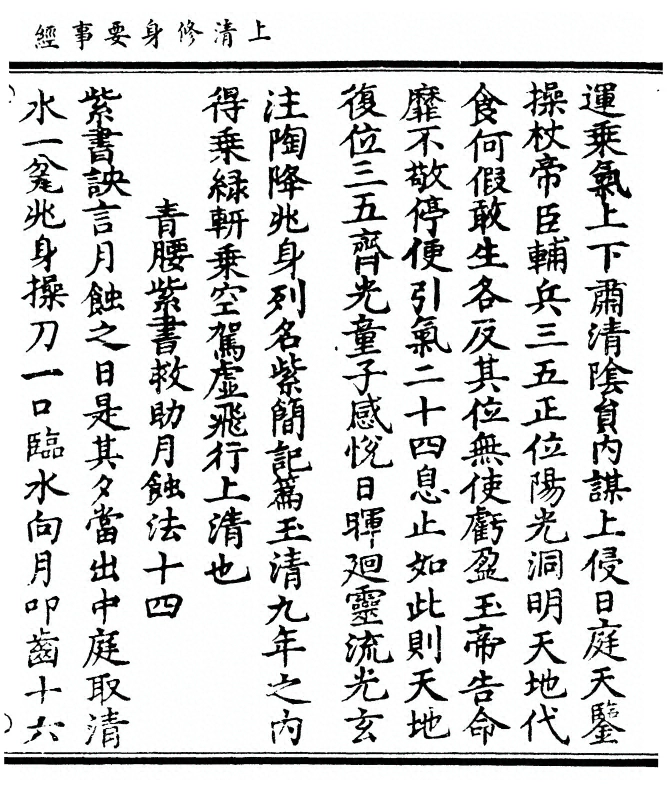 上清修身要事經
運乘氣上下肅清陰貟内謀上侵日庭天鑒
操杖帝臣輔兵三五正位陽光洞明天地代
食何假敢生各反其位無使虧盈玉帝告命
靡不敬停便引氣二十四息止如此則天地
復位三五齊光童子感悅日暉廻靈流光玄
注陶降兆身列名紫簡記篇玉清九年之内
得乗緑軿乗空駕虚飛行上清也
青腰紫書救助月蝕法十四
紫書訣言月蝕之日是其夕當出中庭取清
水一瓮兆身操刀一口臨水向月叩齒十六